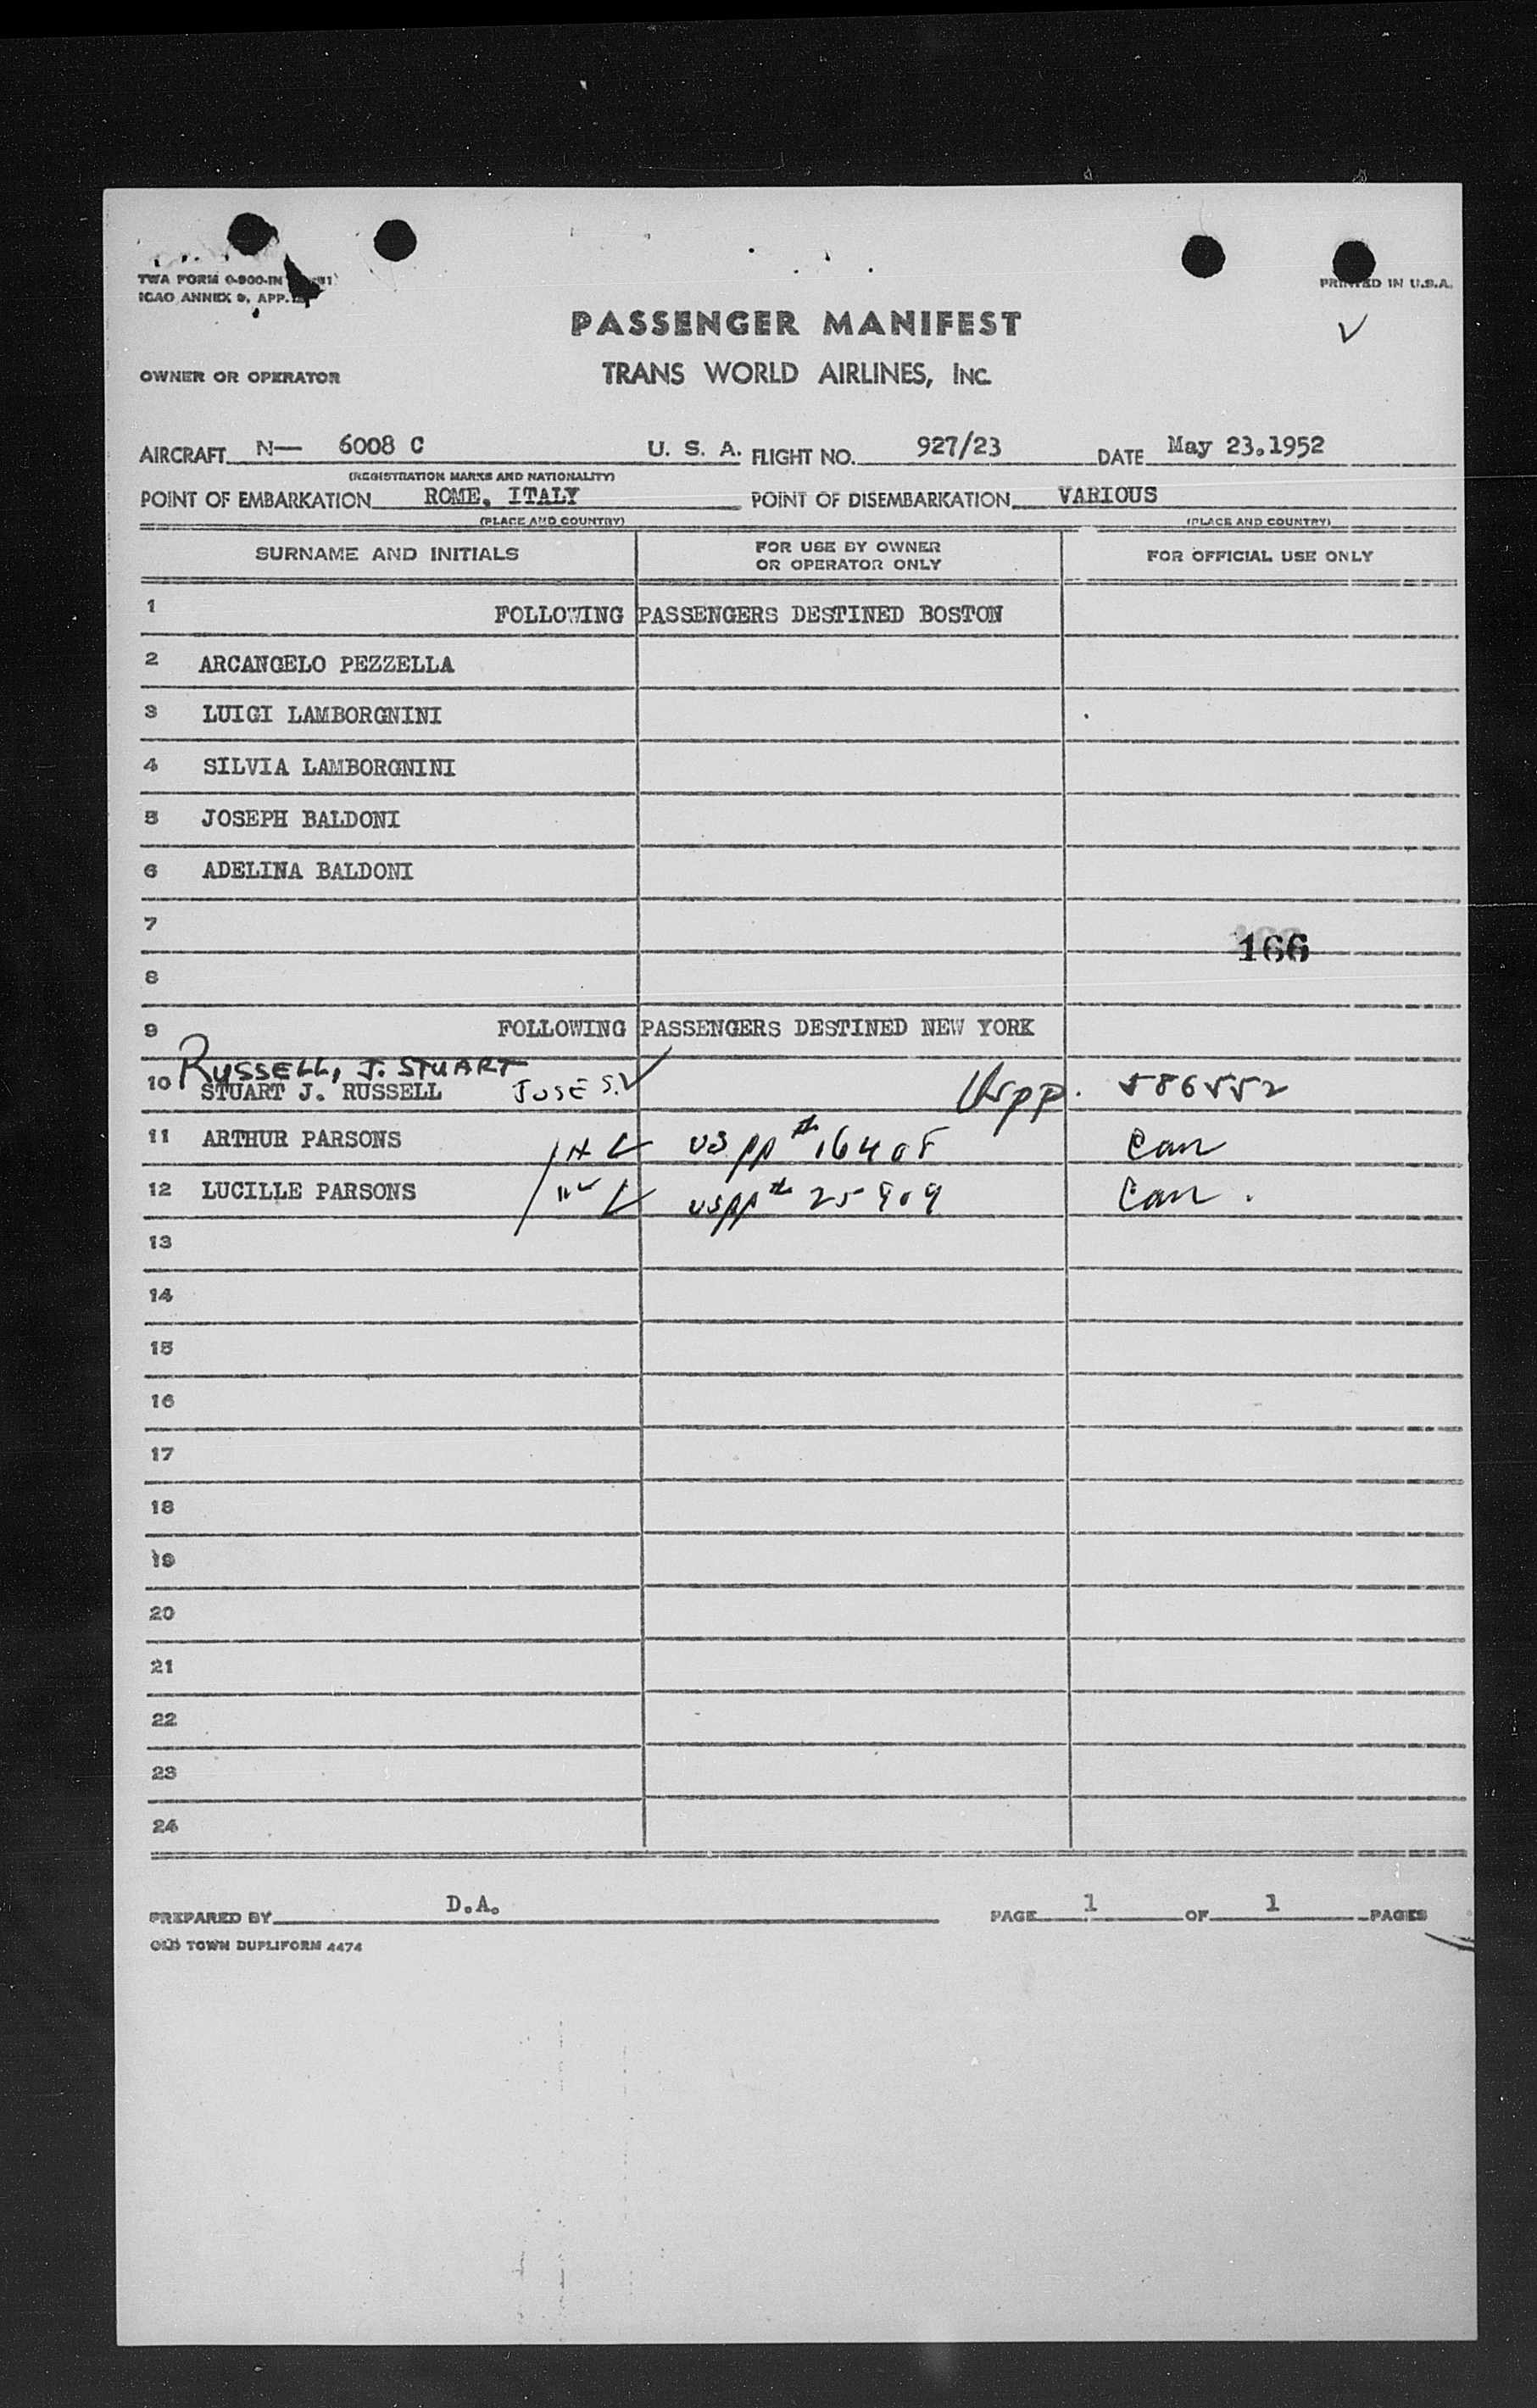 TWA FORM 0-900-IN
ICAO ANNEX 9, APP.
PRINTED IN U.S.A.
PASSENGER MANIFEST
OWNER OR OPERATOR
TRANS WORLD AIRLINES, INC.
AIRCRAFT N— 6008 C U. S. A. FLIGHT NO. 927/23 DATE May 23.1952
(REGISTRATION MARKS AND NATIONALITY)
POINT OF EMBARKATION ROME, ITALY POINT OF DISEMBARKATION VARIOUS
(PLACE AND COUNTRY) (PLACE AND COUNTRY)
SURNAME AND INITIALS FOR USE BY OWNER OR OPERATOR ONLY FOR OFFICIAL USE ONLY
1 FOLLOWING PASSENGERS DESTINED BOSTON
2 ARCANGELO PEZZELLA
3 LUIGI LAMBORGNINI
4 SILVIA LAMBORGNINI
5 JOSEPH BALDONI
6 ADELINA BALDONI
7
166
8
9 FOLLOWING PASSENGERS DESTINED NEW YORK
RUSSELL, J. STUART
10 STUART J. RUSSELL USpp. 586552
11 ARTHUR PARSONS US pp # 16408 Can
12 LUCILLE PARSONS uspp # 25909 Can.
13
14
15
16
17
18
19
20
21
22
23
24
PREPARED BY D.A. PAGE 1 OF 1 PAGES
OLD TOWN DUPLIFORM 4474